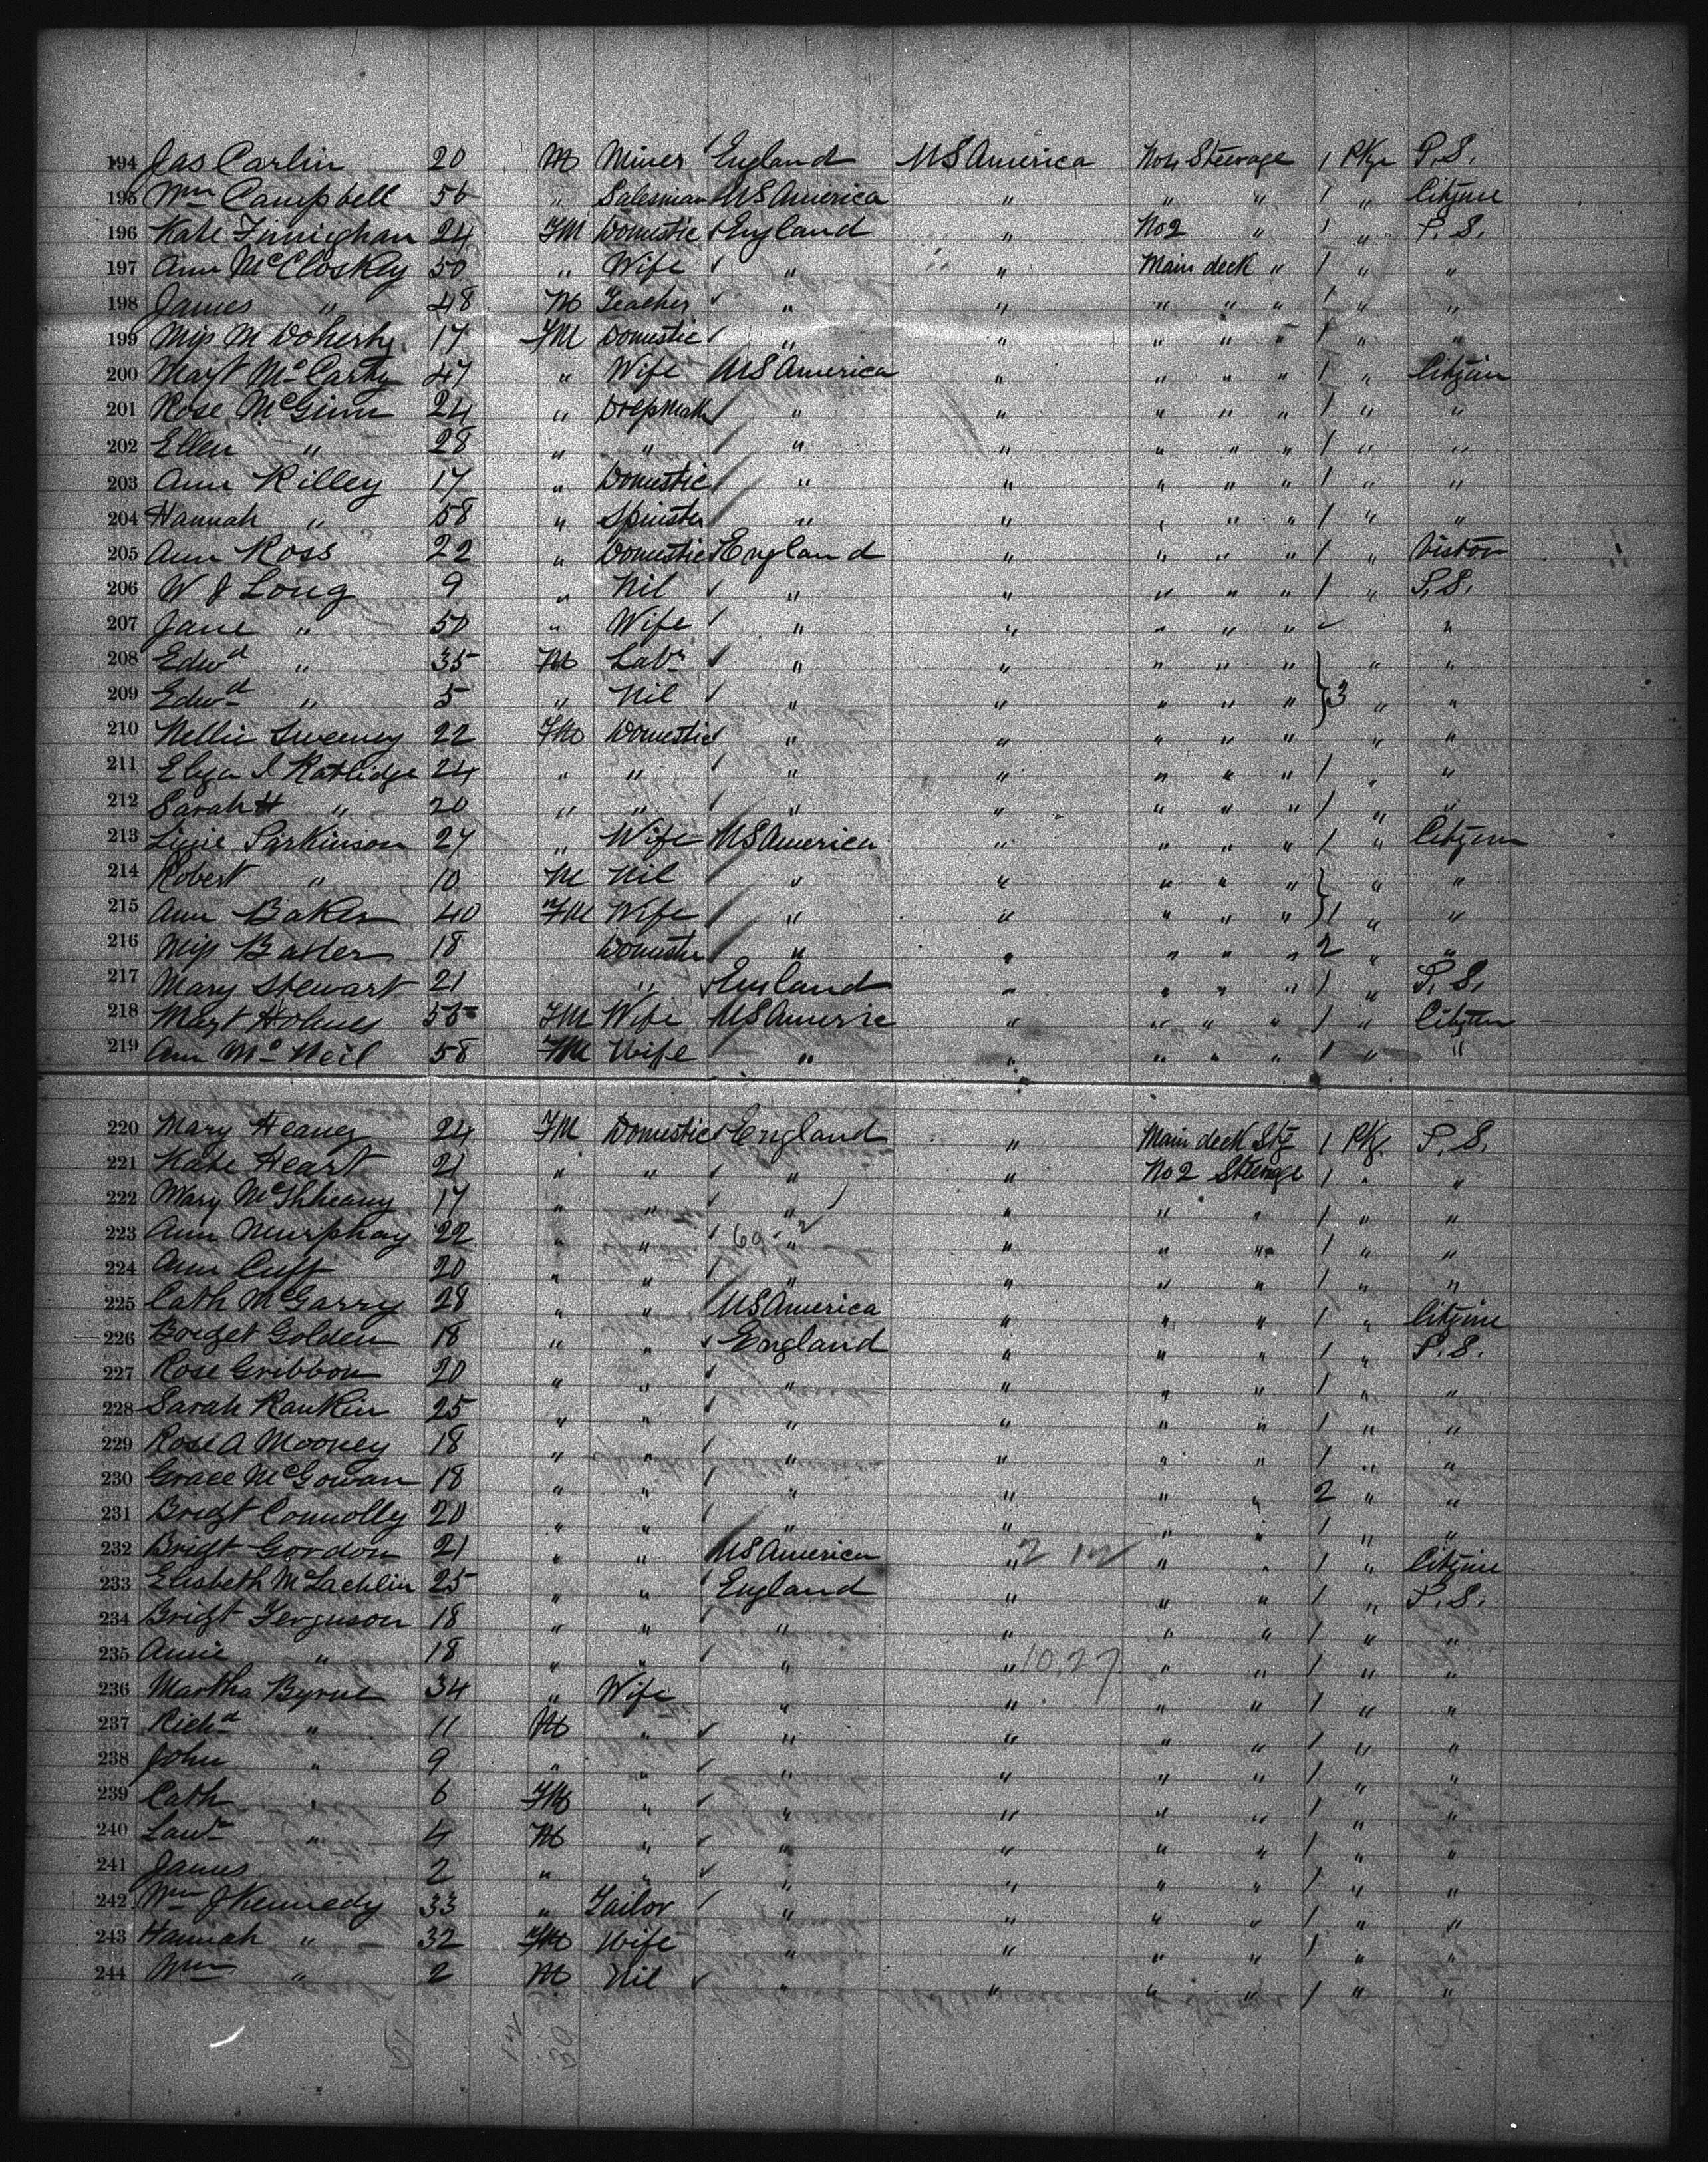 194 Jas Carlin 20 M Miner England US America No 4 Steerage 1 Pkge P.S.
195 Wm Campbell 56 " Salesman US America " " " 1 " Citzine
196 Kate Finnighan 24 FM Domestic England " No 2 " 1 " P.S.
197 Ann McCloskey 50 " Wife " " Main deck " 1 " "
198 James " 48 M Teacher " " " " " 1 " "
199 Miss M Doherty 17 FM Domestic " " " " " 1 " "
200 Margt McCarty 47 " Wife US America " " " " 1 " Citzin
201 Rose McGinn 24 " Dressmak " " " " " 1 " "
202 Ellen " 28 " " " " " " " 1 " "
203 Ann Rilley 17 " Domestic " " " " " 1 " "
204 Hannah " 58 " Spinster " " " " " 1 " "
205 Ann Ross 22 " Domestic England " " " " 1 " Vistor
206 W J Long 9 " Nil " " " " " 1 " P.S.
207 Jane " 50 " Wife " " " " " "
208 Edwd " 35 M Labr " " " " " " "
209 Edwd " 5 " Nil " " " " " 3 " "
210 Nellie Sweeney 22 FM Domestic " " " " " " "
211 Eliza J Ratlidge 24 " " " " " " " 1 " "
212 Sarah H " 20 " " " " " " " 1 " "
213 Lizie Parkinson 27 " Wife US America " " " " 1 " Citzen
214 Robert " 10 M Nil " " " " " " "
215 Ann Baker 40 FM Wife " " " " " 1 " "
216 Miss Baxler 18 Domestic " " " " " 2 " "
217 Mary Stewart 21 " England " " " " 1 " P.S.
218 Margt Holmes 55 FM Wife US Americ " " " " 1 " Citzen
219 Ann McNeil 58 FM Wife " " " " " 1 " "
220 Mary Heaney 24 FM Domestic England " Main deck Stg 1 Pkg. P.S.
221 Kate Heart 21 " " " " No 2 Steerage 1 " "
222 Mary 17 " " " " " " 1 " "
223 Ann Murphay 22 " " 69 " " " " 1 " "
224 Ann Cuff 20 " " " " " " 1 " "
225 Cath McGarry 28 " " US America " " " 1 " Citzine
226 Bridget Golden 18 " " England " " " 1 " P.S.
227 Rose Gribbon 20 " " " " " " 1 " "
228 Sarah Rankin 25 " " " " " " 1 " "
229 Rose A Mooney 18 " " " " " " 1 " "
230 Grace McGowan 18 " " " " " " 2 " "
231 Bridgt Connolly 20 " " " " " " 1 " "
232 Bridgt Gordon 21 " " US America " 2 12 " " 1 " Citzine
233 Elisbeth McLachlin 25 " " England " " " 1 " P.S.
234 Bridgt Ferguson 18 " " " " " " 1 " "
235 Annie " 18 " " " " 10.27 " " 1 " "
236 Martha Byrne 34 " Wife " " " " 1 " "
237 Richd " 11 M " " " " " 1 " "
238 John " 9 " " " " " " 1 " "
239 Cath " 6 FM " " " " " 1 " "
240 Lawr " 4 M " " " " " 1 " "
241 James 2 " " " " " " 1 " "
242 Wm J Kennedy 33 " Tailor " " " " 1 " "
243 Hannah " 32 FM Wife " " " " 1 " "
244 Wm " 2 M Nil " " " " 1 " "